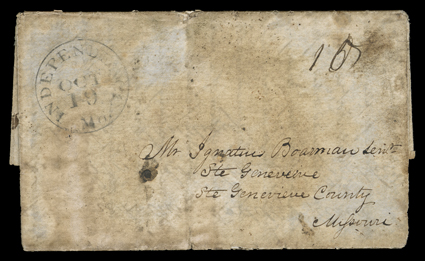 INDEPENDE
OCT
19
10
Mr Ignatius Boarman Senr
Ste Genevieve
Ste Genevieve County
Missouri